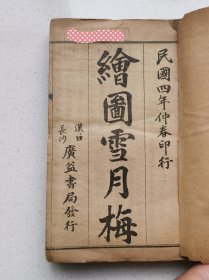 民國四年仲春印行
繪圖雪月梅
漢口
長沙
廣益書局發行